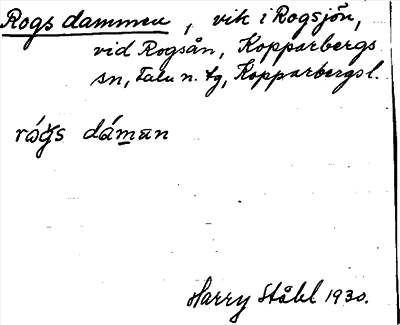 Rogsdammen, vik i Rogsjön,
vid Rogsån, Kopparbergs
sn, Falu n. tg, Kopparbergs l.
råğs dáman
Harry Ståhl 1930.